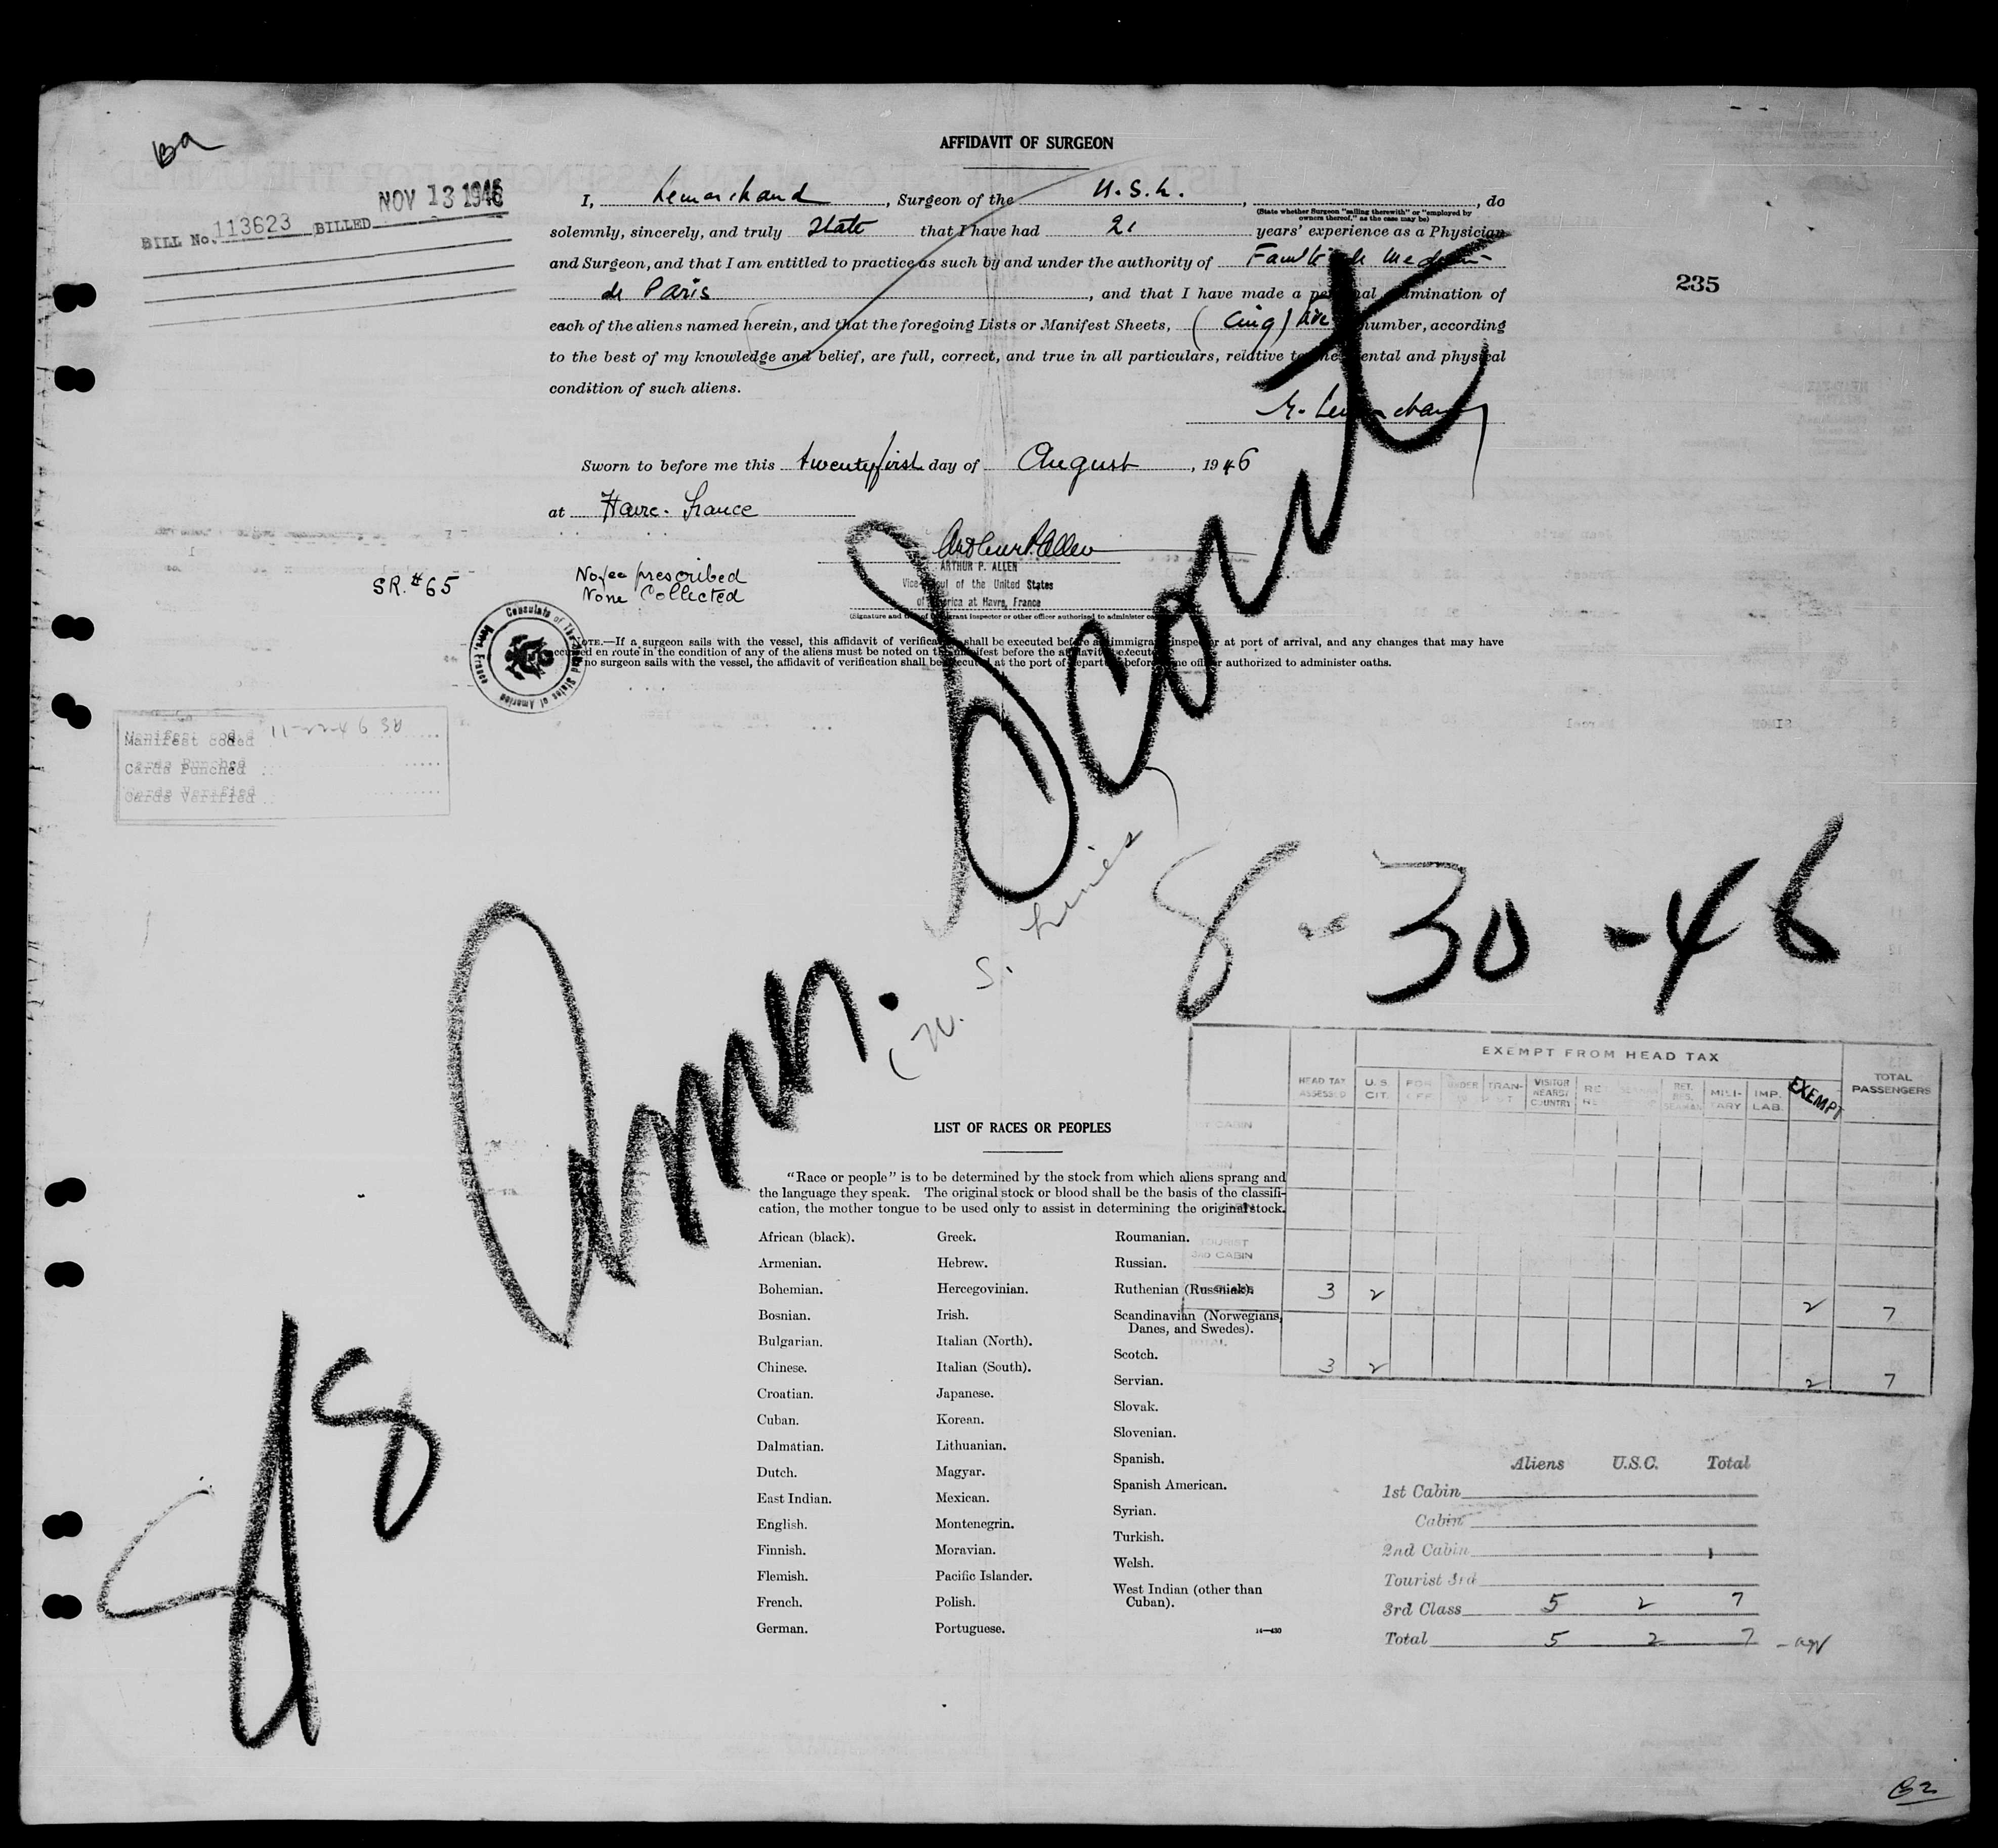 Ba
AFFIDAVIT OF SURGEON
BILL No. 113623 BILLED NOV 13 1946
I, Lemarchand, Surgeon of the U.S.L., (State whether Surgeon "sailing therewith" or "employed by owners thereof," as the case may be), do
solemnly, sincerely, and truly State that I have had 21 years' experience as a Physician
and Surgeon, and that I am entitled to practice as such by and under the authority of
de Paris, and that I have made a personal examination of
235
each of the aliens named herein, and that the foregoing Lists or Manifest Sheets, (Cinq) five number, according
to the best of my knowledge and belief, are full, correct, and true in all particulars, relative to the mental and physical
condition of such aliens.
Lemarchand
Sworn to before me this twentyfirst day of August, 1946
at Havre. France
Arthur P. Allen
SR. #65
No fee prescribed
None Collected
ARTHUR P. ALLEN
Vice Consul of the United States
of America at Havre, France
(Signature and title of immigrant inspector or other officer authorized to administer oaths)
Consulate of The United States of America Havre, France
NOTE.—If a surgeon sails with the vessel, this affidavit of verification shall be executed before an immigrant inspector at port of arrival, and any changes that may have
occurred en route in the condition of any of the aliens must be noted on the manifest before the affidavit is executed
no surgeon sails with the vessel, the affidavit of verification shall be executed at the port of departure before some officer authorized to administer oaths.
Manifest coded 11-22-46
Cards Punched
Cards Verified
S/S Amn. Scout
(U. S. Lines)
8-30-46
EXEMPT FROM HEAD TAX
HEAD TAX ASSESSED
U. S. CIT.
UNDER
TRAN-
VISITOR NEARBY COUNTRY
RET. RES. SEAMAN
MILI-TARY
IMP. LAB.
EXEMPT
TOTAL PASSENGERS
CABIN
TOURIST
3RD CABIN
3 2 2 7
TOTAL
3 2 2 7
LIST OF RACES OR PEOPLES
"Race or people" is to be determined by the stock from which aliens sprang and
the language they speak. The original stock or blood shall be the basis of the classifi-
cation, the mother tongue to be used only to assist in determining the original stock.
African (black).
Armenian.
Bohemian.
Bosnian.
Bulgarian.
Chinese.
Croatian.
Cuban.
Dalmatian.
Dutch.
East Indian.
English.
Finnish.
Flemish.
French.
German.
Greek.
Hebrew.
Hercegovinian.
Irish.
Italian (North).
Italian (South).
Japanese.
Korean.
Lithuanian.
Magyar.
Mexican.
Montenegrin.
Moravian.
Pacific Islander.
Polish.
Portuguese.
Roumanian.
Russian.
Ruthenian (Russniak).
Scandinavian (Norwegians,
Danes, and Swedes).
Scotch.
Servian.
Slovak.
Slovenian.
Spanish.
Spanish American.
Syrian.
Turkish.
Welsh.
West Indian (other than
Cuban).
14—430
Aliens U.S.C. Total
1st Cabin
Cabin
2nd Cabin
Tourist 3rd
3rd Class 5 2 7
Total 5 2 7